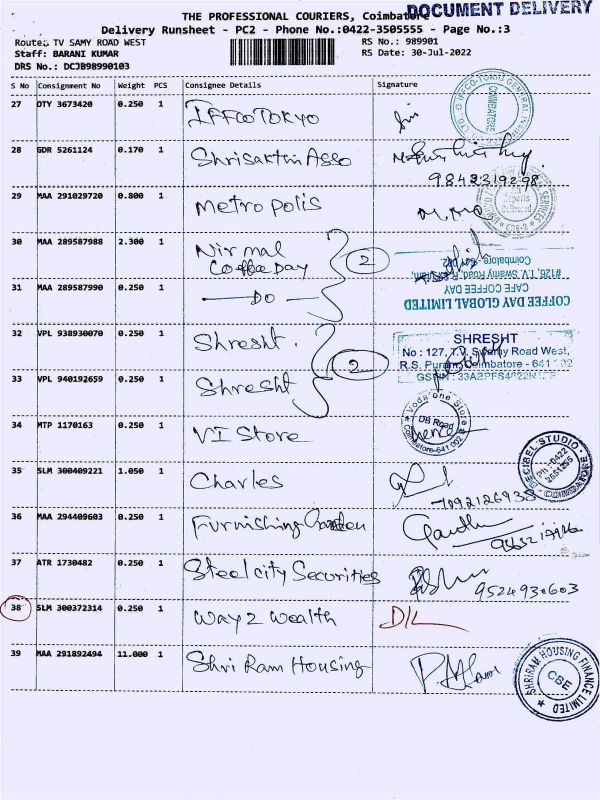 THE PROFESSIONAL COURIERS, Coimbatore
DOCUMENT DELIVERY
Delivery Runsheet - PC2 - Phone No.:0422-3505555 - Page No.:3
Route: TV SAMY ROAD WEST
RS No.: 989901
Staff: BARANI KUMAR
RS Date: 30-Jul-2022
DRS No.: DCJB98990103
S No Consignment No Weight PCS Consignee Details Signature
27 OTY 3673420 0.250 1 IFFCO TOKYO
IFFCO-TOKIO GENERAL
COIMBATORE
28 GDR 5261124 0.170 1 Shrisakthi Asso
9842319298
29 MAA 291029720 0.800 1 Metropolis
30 MAA 289587988 2.300 1 Nirmal
Coffee Day
2
31 MAA 289587990 0.250 1 — DO —
COFFEE DAY GLOBAL LIMITED
CAFE COFFEE DAY
#126, T.V. Swamy Road
Coimbatore - 641 002
32 VPL 938930070 0.250 1 Shresht
2
SHRESHT
No : 127, T.V. Swamy Road West,
R.S. Puram, Coimbatore - 641 002
33 VPL 940192659 0.250 1 Shresht
34 MTP 1170163 0.250 1 VI Store
Vodafone Store
DB Road
Coimbatore-641 002
35 SLM 300409221 1.050 1 Charles
7092126938
DECIBEL STUDIO
COIMBATORE
36 MAA 294409603 0.250 1 Furnishing Garden
37 ATR 1730482 0.250 1 Steelcity Securities
9524930603
38 SLM 300372314 0.250 1 Way 2 Wealth
39 MAA 291892494 11.000 1 Shri Ram Housing
SHRIRAM HOUSING FINANCE LIMITED
CBE